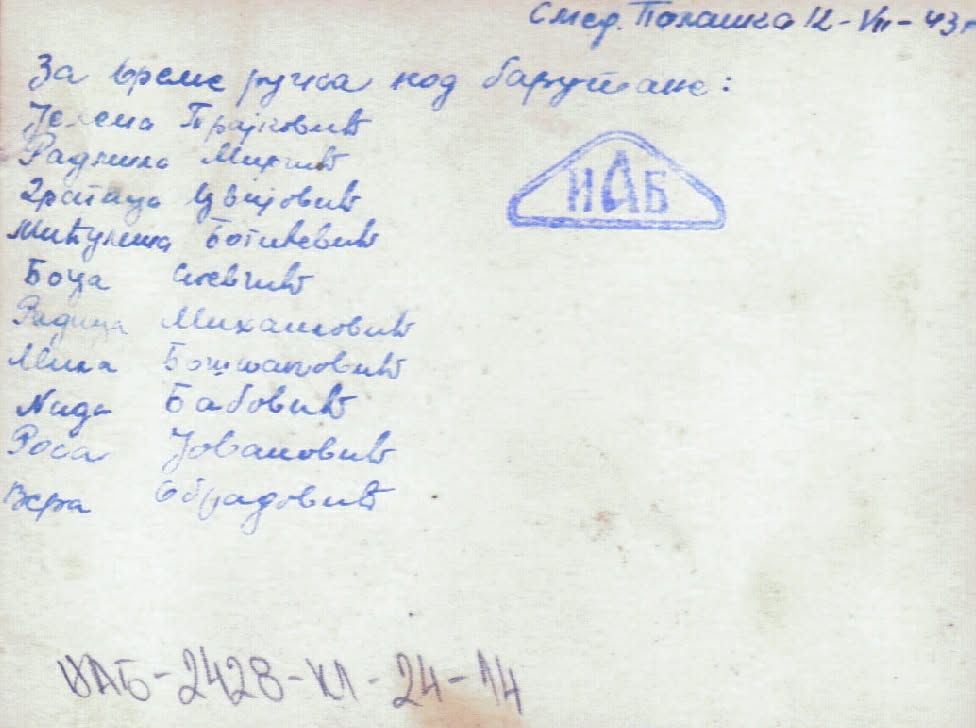 Смед. Паланка 12-VII-43 г
За време ручка код барутане:
Јелена Трајковић
Радмила Мирчић
Цвијовић
Боца
Радица Михаиловић
Мика Бошњаковић
Нада Бабовић
Роса Јовановић
Вера Обрадовић
ИАБ
ИАБ-2428-К1-24-14